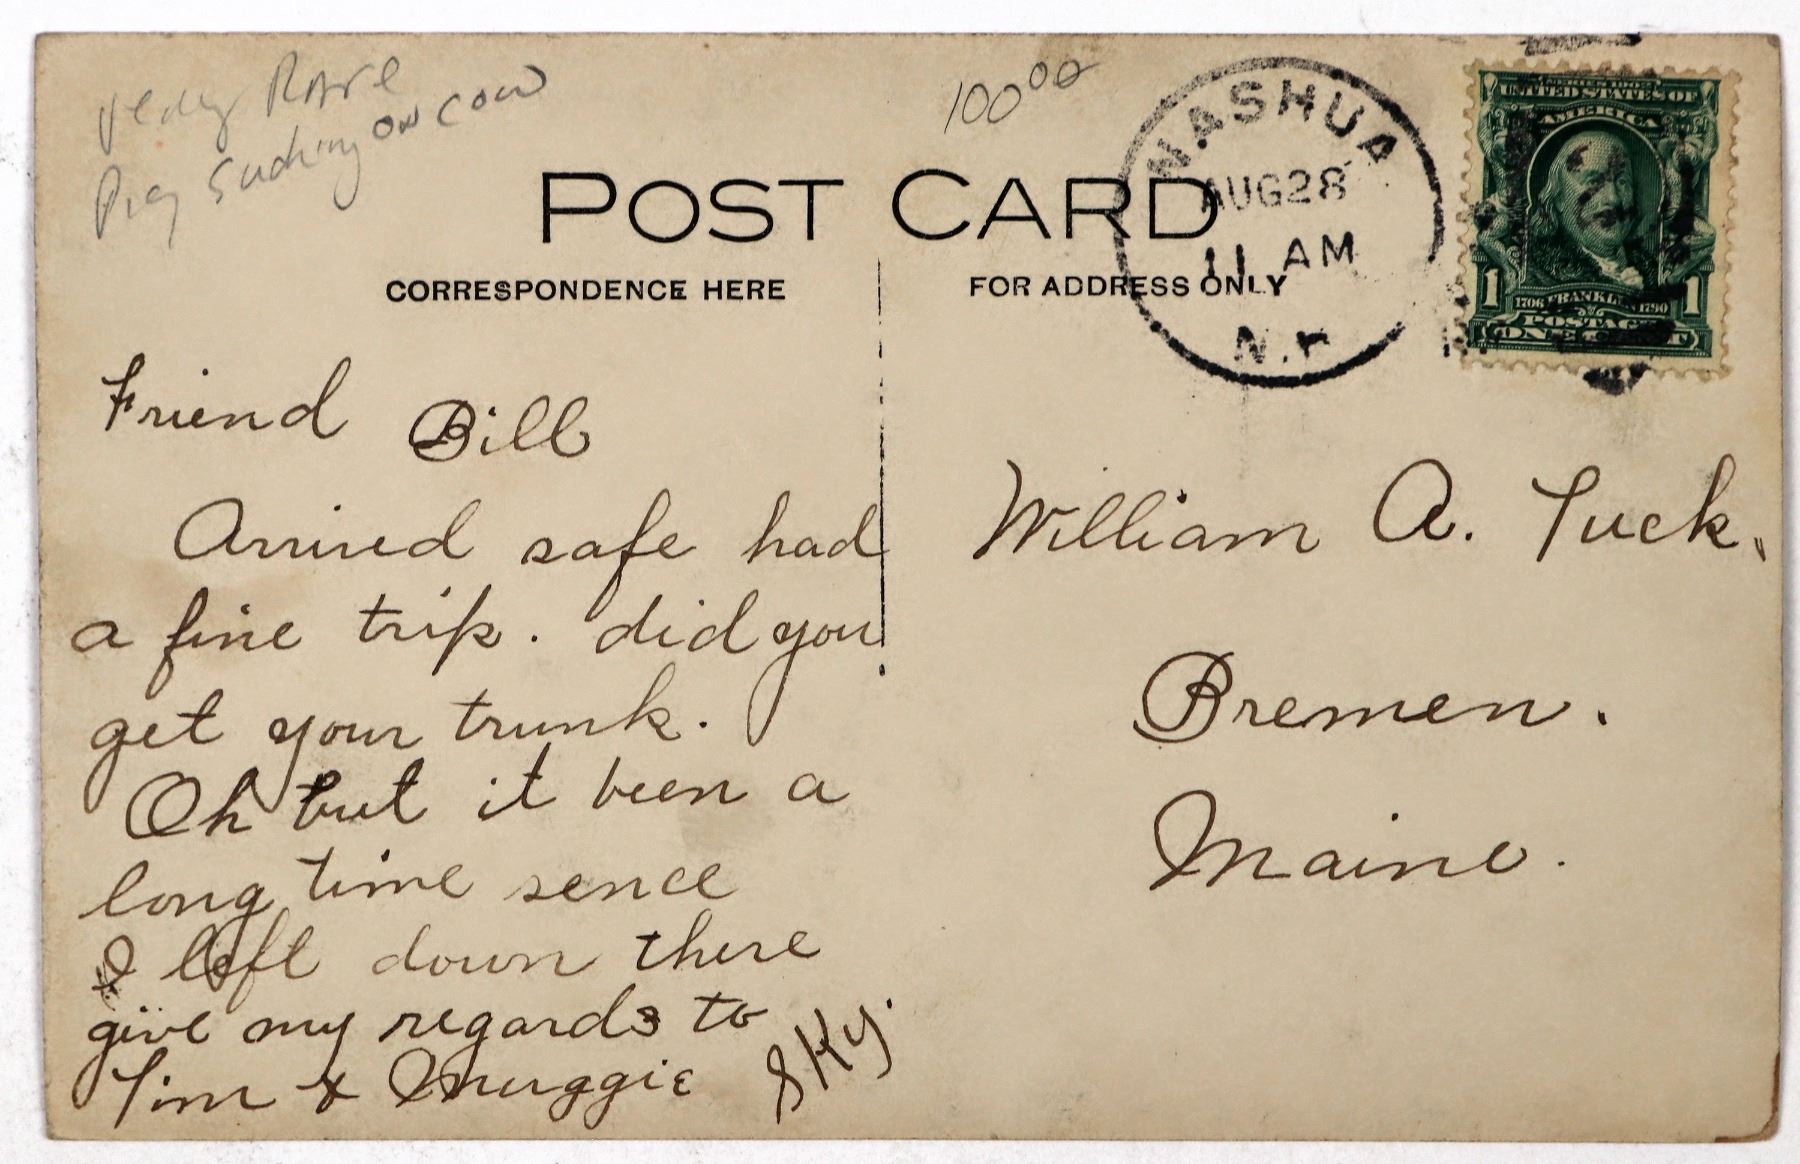 Very Rare
Pig sucking on cow
100 00
POST CARD
CORRESPONDENCE HERE
FOR ADDRESS ONLY
NASHUA
AUG 28
11 AM
N.
SERIES 1902
UNITED STATES OF
AMERICA
1 1706 FRANKLIN 1790 1
POSTAGE
ONE CENT
Friend Bill
Arrived safe had
a fine trip. did you
get your trunk.
Oh but it been a
long time sence
I left down there
give my regards to
Tim & Muggie
Sky.
William A. Tuck.
Bremen.
Maine.